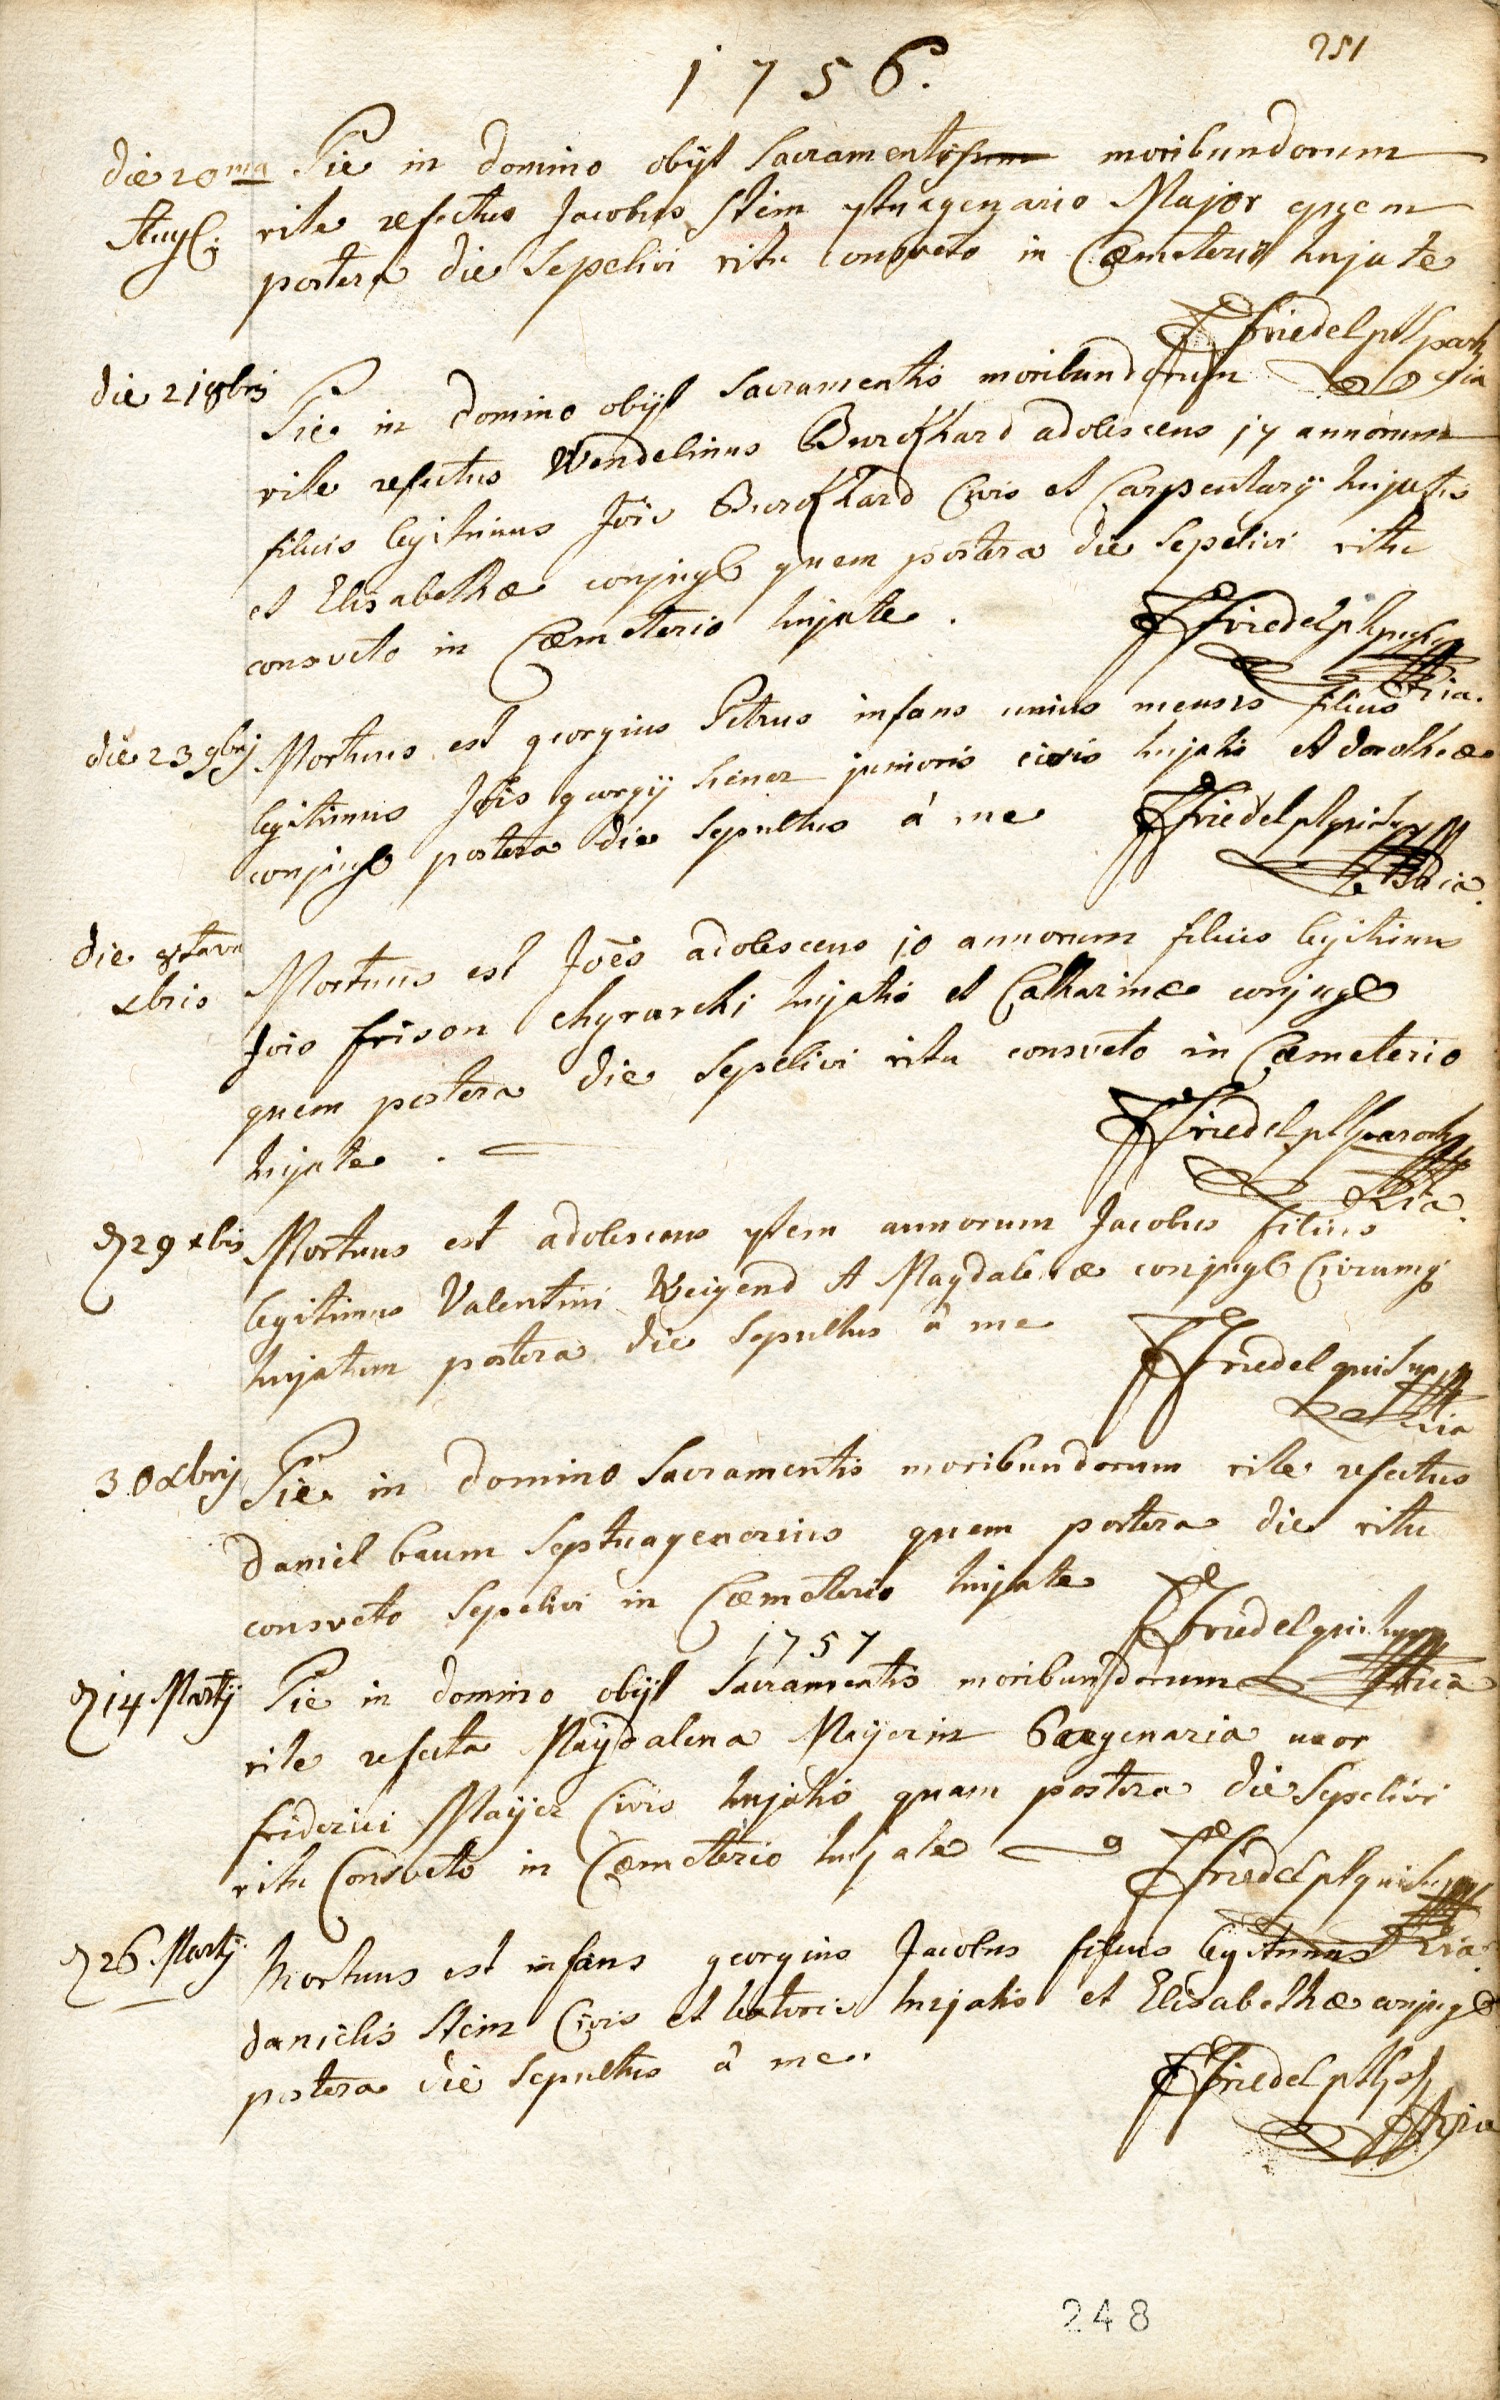 251
1756.
die 20ma Pie in domino obijt Sacramentis moribundorum
Augl: rite refectus Jacobus Stein 7tuagenario Major quem
postera die Sepelivi ritu consveto in Cœmeterio hujate
Friedel pl parh
die 21 8bris Pie in domino obijt Sacramentis moribundorum
rite refectus Wendelinus Burckhard adolescens 17 annorum
filius legitimus Jois Burckhard Civis et Carpentarij hujatis
et Elisabethæ conjugis quem postera die Sepelivi ritu
consveto in Cœmeterio hujate.
Friedel
die 23 9brij Mortuus est georgius Petrus infans unius mensis filius
legitimus Jois georgij hener junioris civis hujatis et dorotheæ
conjugis postera die Sepultus à me
Friedel
die 8tava Mortuus est Joēs adolescens 10 annorum filius legitimus
xbris
Jois frison chyrurchi hujatis et Catharinæ conjugis
quem postera die Sepelivi ritu consveto in Cœmeterio
hujate.
Friedel pl parochg
29 xbris Mortuus est adolescens 7tem annorum Jacobus filius
legitimus Valentini Weigend et Magdalenæ conjugis Civium
hujatum postera die Sepultus à me
Friedel qui Supra
30 Xbrij Pie in domino Sacramentis moribundorum rite refectus
daniel baum Septuagenarius quem postera die ritu
consveto Sepelivi in Cœmeterio hujate
Friedel qui Supra
1757
14 Martij Pie in domino obijt Sacramentis moribundorum
rite refecta Magdalena Mayerin 6axgenaria uxor
friderici Mayer Civis hujatis quam postera die Sepelivi
ritu Consveto in Cœmeterio hujate
Friedel pl qui Supra
26. Martij Mortuus est infans georgius Jacobus filius legitimus
danielis Stein Civis et textoris hujatis et Elisabethæ conjugis
postera die Sepultus à me
Friedel
248